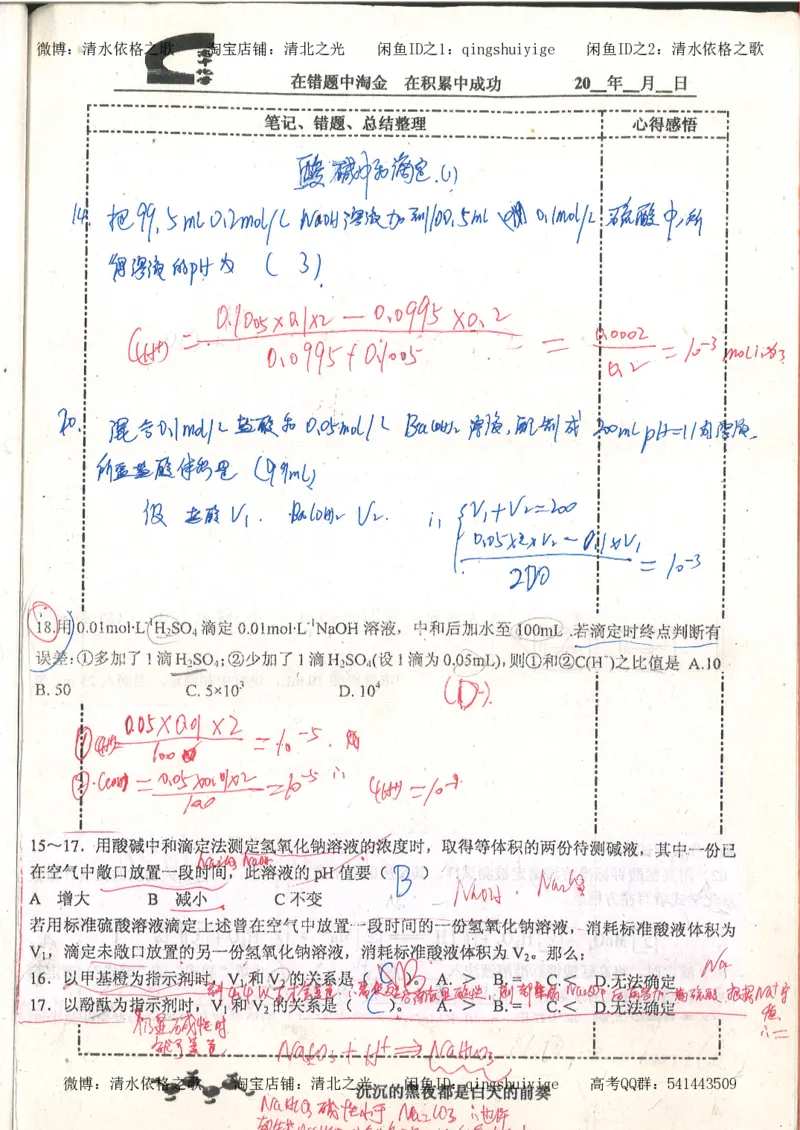 微博：清水依格之歌 淘宝店铺：清北之光 闲鱼ID之1：qingshuiyige 闲鱼ID之2：清水依格之歌
在错题中淘金 在积累中成功 20__年__月__日
笔记、错题、总结整理 心得感悟
酸碱中和滴定.(1)
14. 把99.5mL 0.2mol/L NaOH溶液加到100.5mL 0.1mol/L 硫酸中,所
得溶液的pH为 ( 3 )
C(H+) = 0.1005×0.1×2 - 0.0995×0.2 / 0.0995+0.1005 = 0.0002 / 0.2 = 10⁻³ mol
20. 混合0.1mol/L 盐酸和 0.05mol/L Ba(OH)₂ 溶液,配制成 200mL pH=11的溶液,
所需盐酸体积是 (99mL)
设 盐酸 V₁. Ba(OH)₂ V₂. ∴ { V₁+V₂=200
0.05×2×V₂ - 0.1×V₁ / 200 = 10⁻³
18.用0.01mol·L⁻¹H₂SO₄滴定0.01mol·L⁻¹NaOH溶液，中和后加水至100mL .若滴定时终点判断有
误差:①多加了1滴H₂SO₄;②少加了1滴H₂SO₄(设1滴为0.05mL),则①和②C(H⁺)之比值是 A.10
B. 50 C. 5×10³ D. 10⁴ (D).
① C(H+)= 0.05×0.01×2 / 100 = 10⁻⁵.
②. C(OH) = 0.05×0.01×2 / 100 = 10⁻⁵ ∴ C(H+) = 10⁻⁹
15～17．用酸碱中和滴定法测定氢氧化钠溶液的浓度时，取得等体积的两份待测碱液，其中一份已
在空气中敞口放置一段时间，此溶液的pH值要（ B ）
NaOH . Na₂CO₃
A 增大 B 减小 C不变
若用标准硫酸溶液滴定上述曾在空气中放置一段时间的一份氢氧化钠溶液，消耗标准酸液体积为
V₁，滴定未敞口放置的另一份氢氧化钠溶液，消耗标准酸液体积为V₂。那么：
16．以甲基橙为指示剂时，V₁和V₂的关系是（ B ）。 A．＞ B.＝ C.＜ D.无法确定
17．以酚酞为指示剂时，V₁和V₂的关系是（ C ）。 A．＞ B.＝ C.＜ D.无法确定
Na₂CO₃ + H⁺ ⇒ NaHCO₃
微博：清水依格之歌 淘宝店铺：清北之光 闲鱼ID：qingshuiyige 高考QQ群：541443509
沉沉的黑夜都是白天的前奏
NaHCO₃ 碱性小于 Na₂CO₃